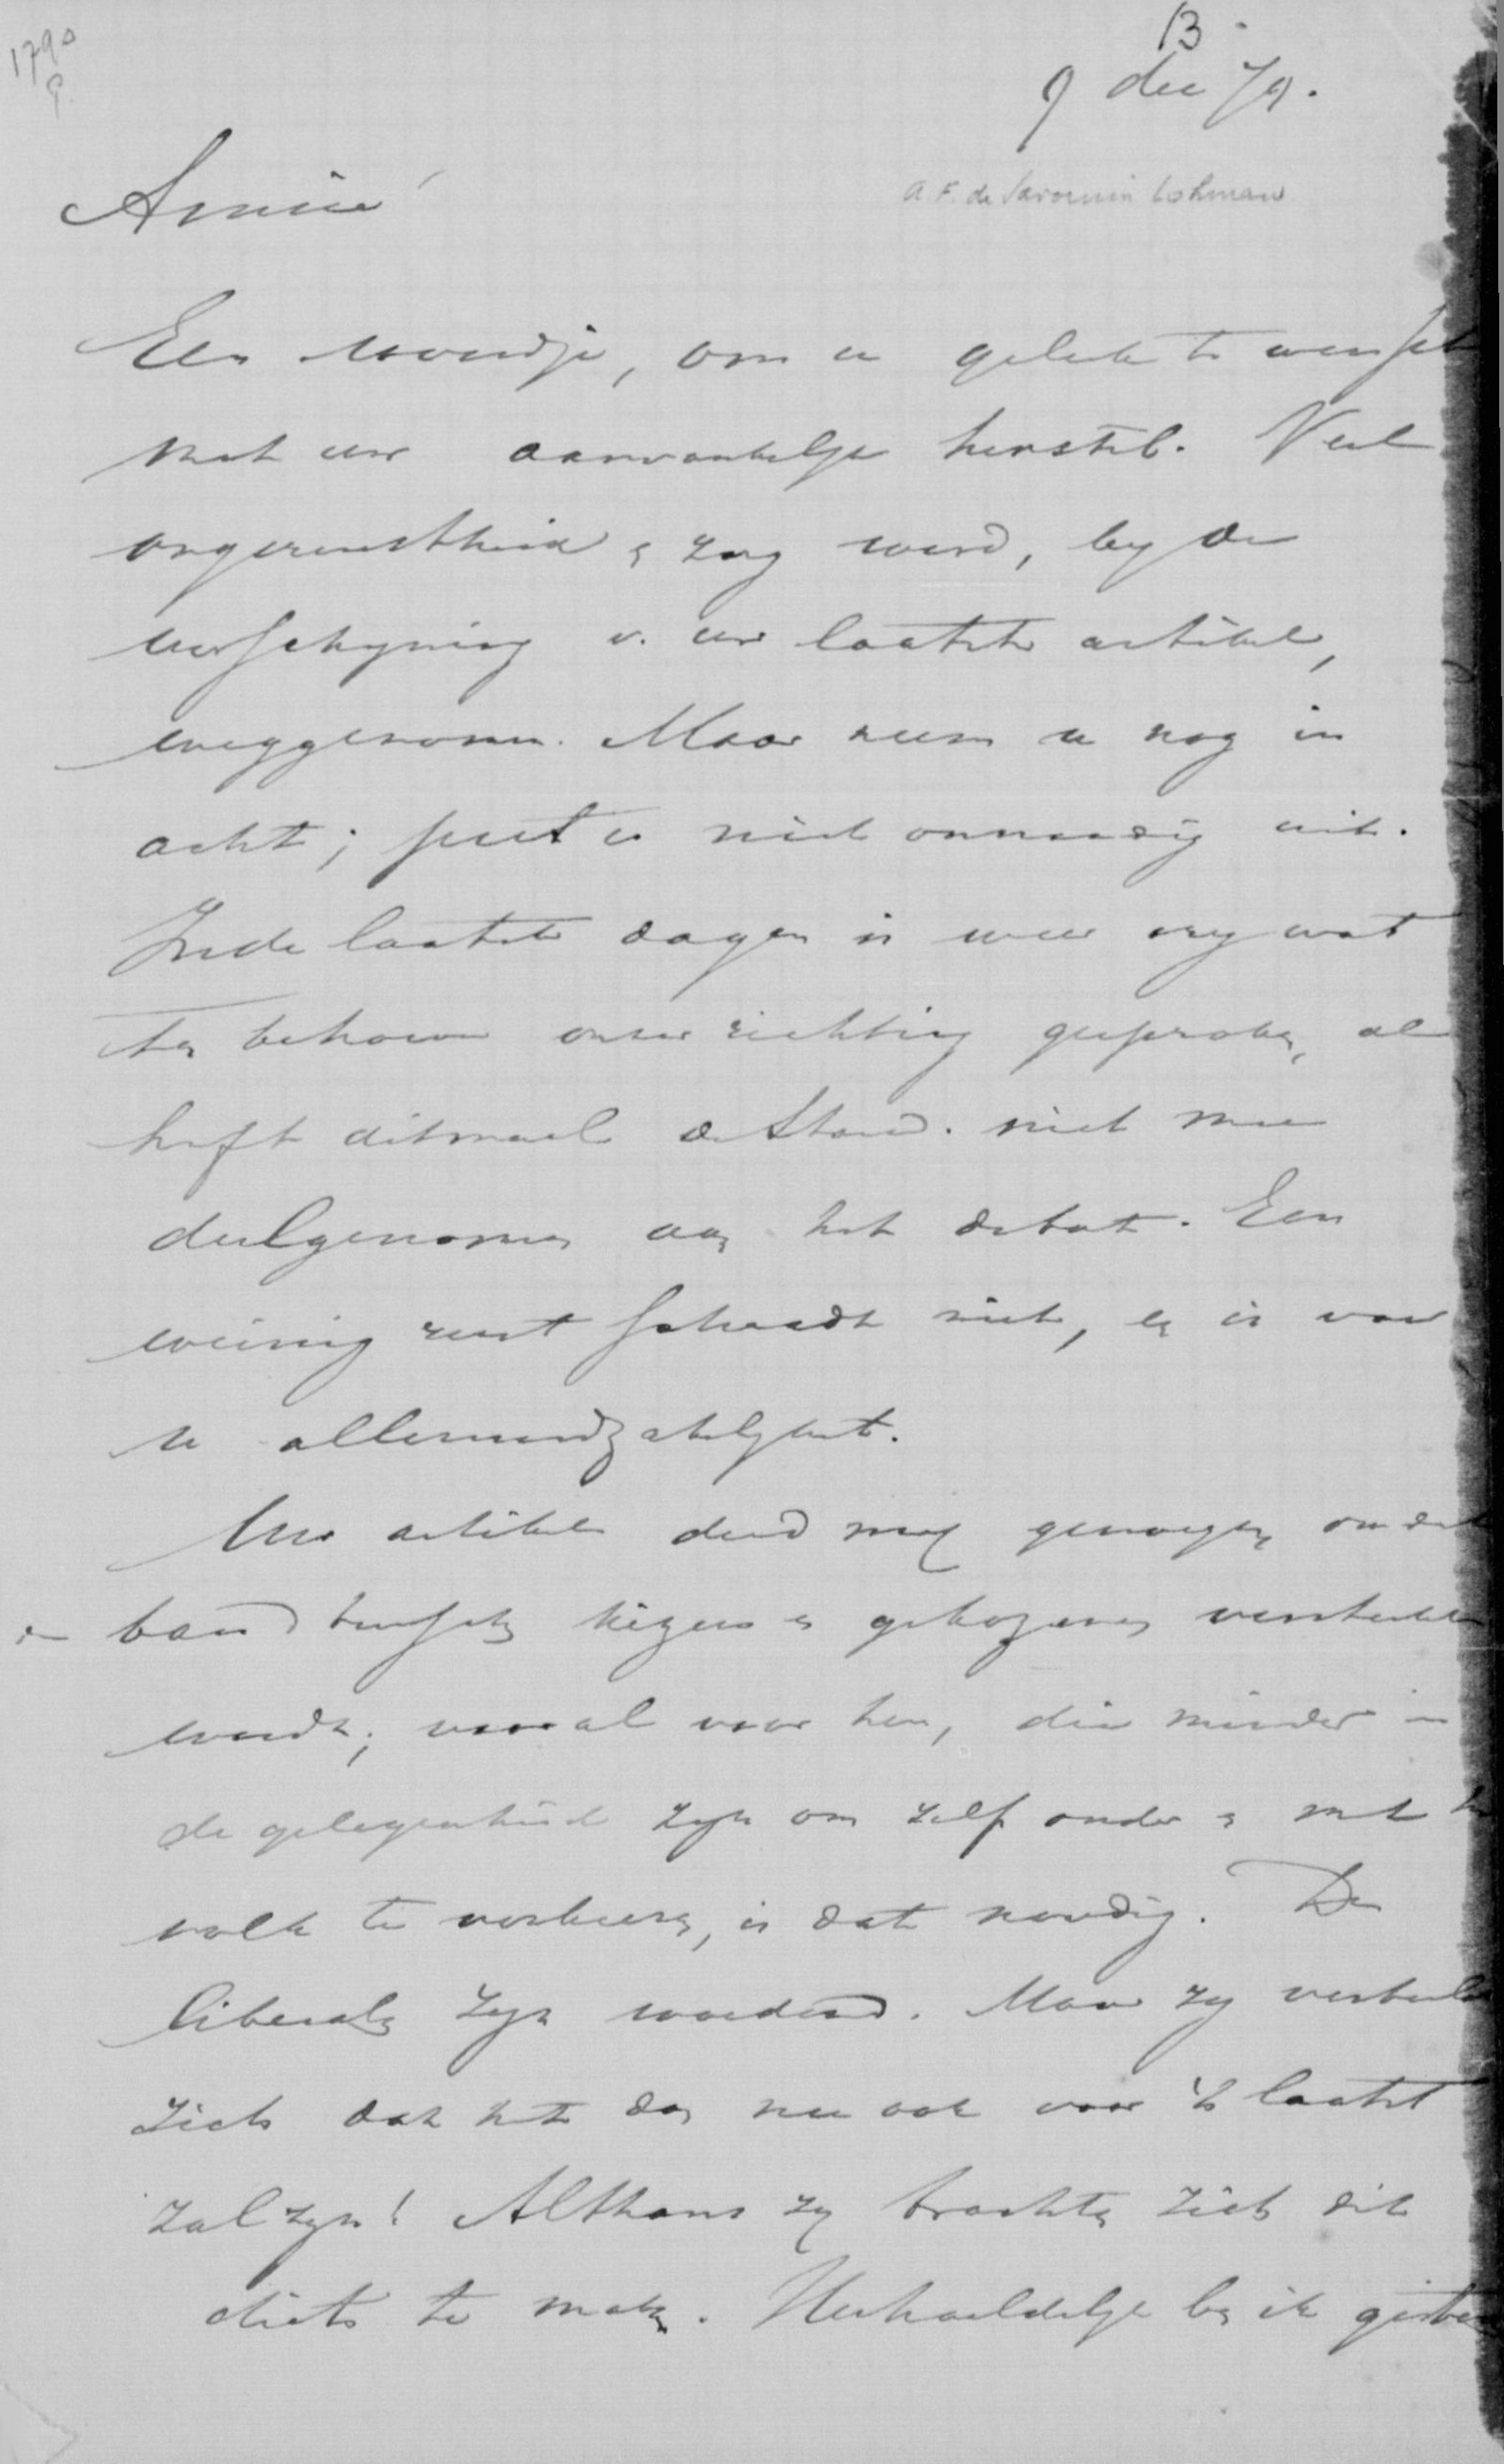 1790
9.
13.
9 dec 79.
Amice
A. F. de Savornin Lohman
Een woordje, om u geluk te wensch
met uw aanvankelyk herstel. Veel
ongerustheid & zorg werd, by de
verschyning v. uw laatste artikel,
weggenomen. Maar neem u nog in
acht; put u niet onnoodig uit.
In de laatste dagen is weer vry wat
ten behoeve onzer richting gesproken, al
heeft ditmaal de Stand. niet mee
deelgenomen aan het debat. Een
weinig rust schaadt niet, en is voor
u allernoodzakelykst.
Uw artikel deed my genoegen omdat
de band tusschen kiezers en gekozenen versterkt
wordt; vooral voor hen, die minder in
de gelegenheid zyn om zelf onder & met h
volk te verkeeren, is dat noodig. De
liberalen zyn woedend. Maar zy verbeelden
zich dat het dan nu ook voor 't laatst
zal zyn! Althans zy trachten zich dit
diets te maken. Herhaaldelyk ben ik gisteren